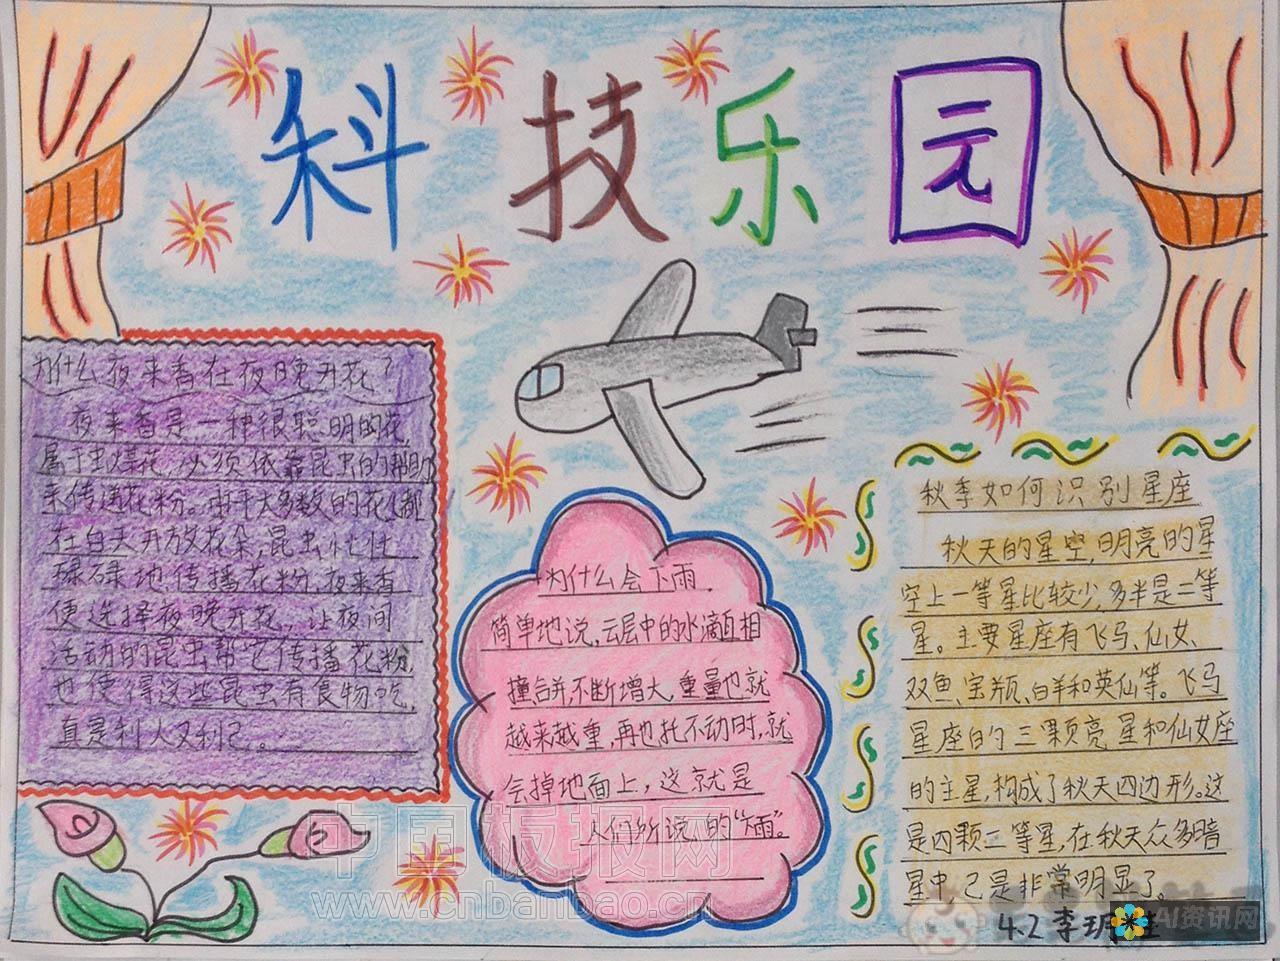 科技乐园
为什么夜来香在夜晚开花？
夜来香是一种很聪明的花,
属于虫媒花,必须依靠昆虫的帮助
来传递花粉。由于大多数的花儿都
在白天开放花朵,昆虫忙忙
碌碌地传播花粉,夜来香
便选择夜晚开花,让夜间
活动的昆虫帮它传播花粉,
也使得这些昆虫有食物吃,
真是利人又利己。
为什么会下雨.
简单地说,云层中的水滴互相
撞合并,不断增大,重量也就
越来越重,再也托不动时,就
会掉地面上，这就是
人们所说的“大雨”。
秋季如何识别星座
秋天的星空,明亮的星
空上一等星比较少,多半是二等
星。主要星座有飞马、仙女、
双鱼、宝瓶、白羊和英仙等。飞马
星座的三颗亮星和仙女座
的主星,构成了秋天四边形。这
是四颗二等星,在秋天众多暗
星中,已是非常明显了。
4.2 李玥
中国板报网
www.cnbanbao.cn
AI资讯网